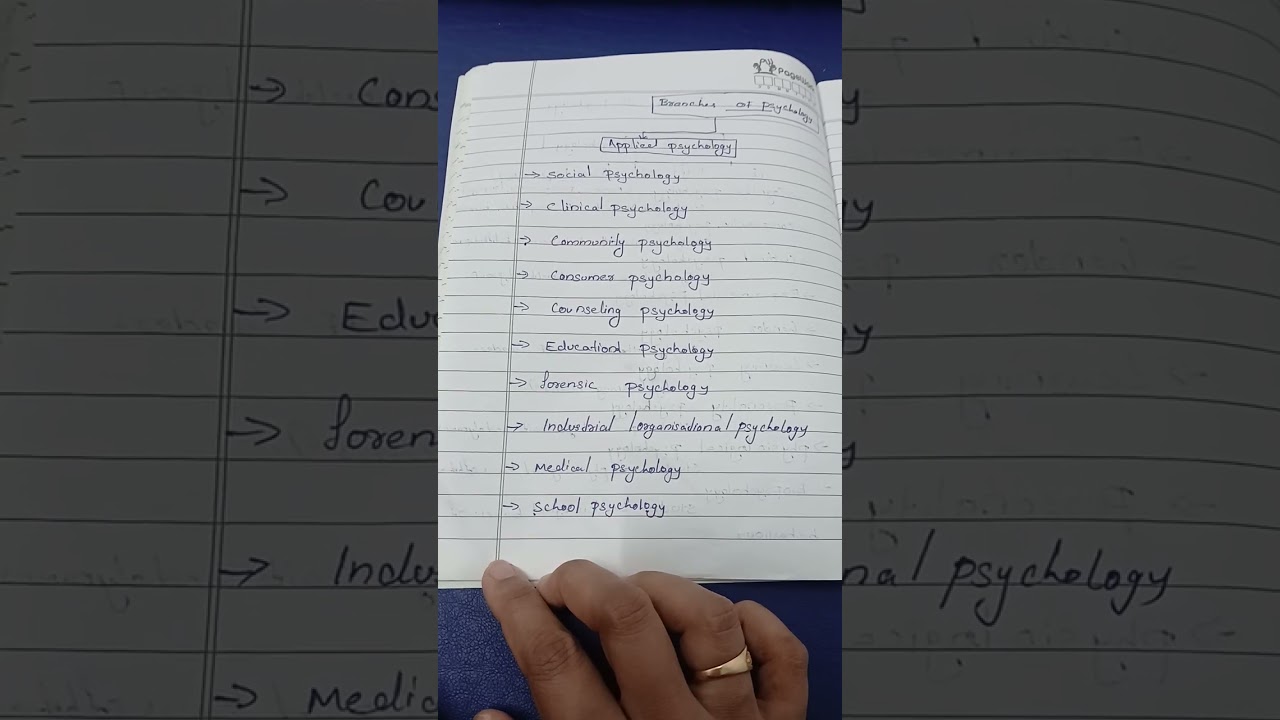 Branches of Psychology
Applied psychology
→ social psychology
→ clinical psychology
→ community psychology
→ consumer psychology
→ counseling psychology
→ Educational psychology
→ forensic psychology
→ Industrial /organisational psychology
→ Medical psychology
→ school psychology